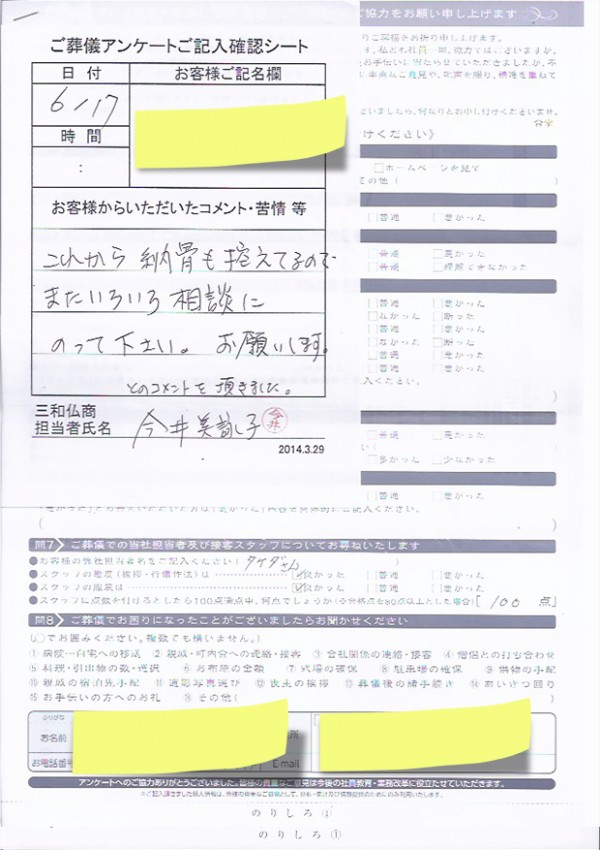 ご協力をお願い申し上げます
ご葬儀アンケートご記入確認シート
日付
お客様ご記名欄
6/17
時間
:
お客様からいただいたコメント・苦情 等
これから 納骨も控えてるので
またいろいろ 相談に
のって下さい。 お願いします。
とのコメントを頂きました。
三和仏商
担当者氏名
今井
2014.3.29
けください》
□ホームページを見て
その他（
□普通 □悪かった
□普通 □悪かった
□普通 □理解できなかった
□普通 □悪かった
□なかった □断った
□普通 □悪かった
□なかった □断った
□普通 □悪かった
□普通 □悪かった
□普通 □悪かった
□多かった □少なかった
□普通 □悪かった
問7 ご葬儀での当社担当者及び接客スタッフについてお尋ねいたします
●お客様の弊社担当者名をご記入ください（ タケダさん ）
●スタッフの態度（挨拶・行儀作法）は ☑良かった □普通 □悪かった
●スタッフの服装は ☑良かった □普通 □悪かった
●スタッフに点数を付けるとしたら100点満点中、何点でしょうか（※合格点を80点以上とした場合）［ 100 点］
問8 ご葬儀でお困りになったことがございましたらお聞かせください
（○でお囲みください。複数でも構いません。）
①病院→自宅への移送 ②親戚・町内会への連絡・接客 ③会社関係の連絡・接客 ④僧侶との打ち合わせ
⑤料理・引出物の数・選択 ⑥お布施の金額 ⑦式場の確保 ⑧駐車場の確保 ⑨供物の手配
⑩親戚の宿泊先手配 ⑪遺影写真選び ⑫喪主の挨拶 ⑬葬儀後の諸手続き ⑭あいさつ回り
⑮お手伝いの方へのお礼 ⑯その他（
ふりがな
お名前
お電話番号
E-mail
アンケートへのご協力ありがとうございました。皆様の貴重なご意見は今後の社員教育・業務改革に役立たせていただきます。
のりしろ
のりしろ①